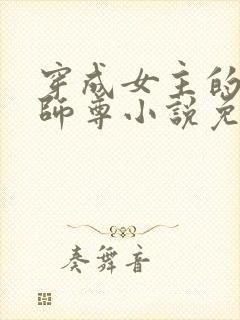 穿成女主的
師尊小說免
奏舞音